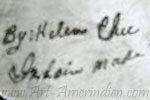 By: Helen Chee
Indain made
www.Art-Amerindien.com